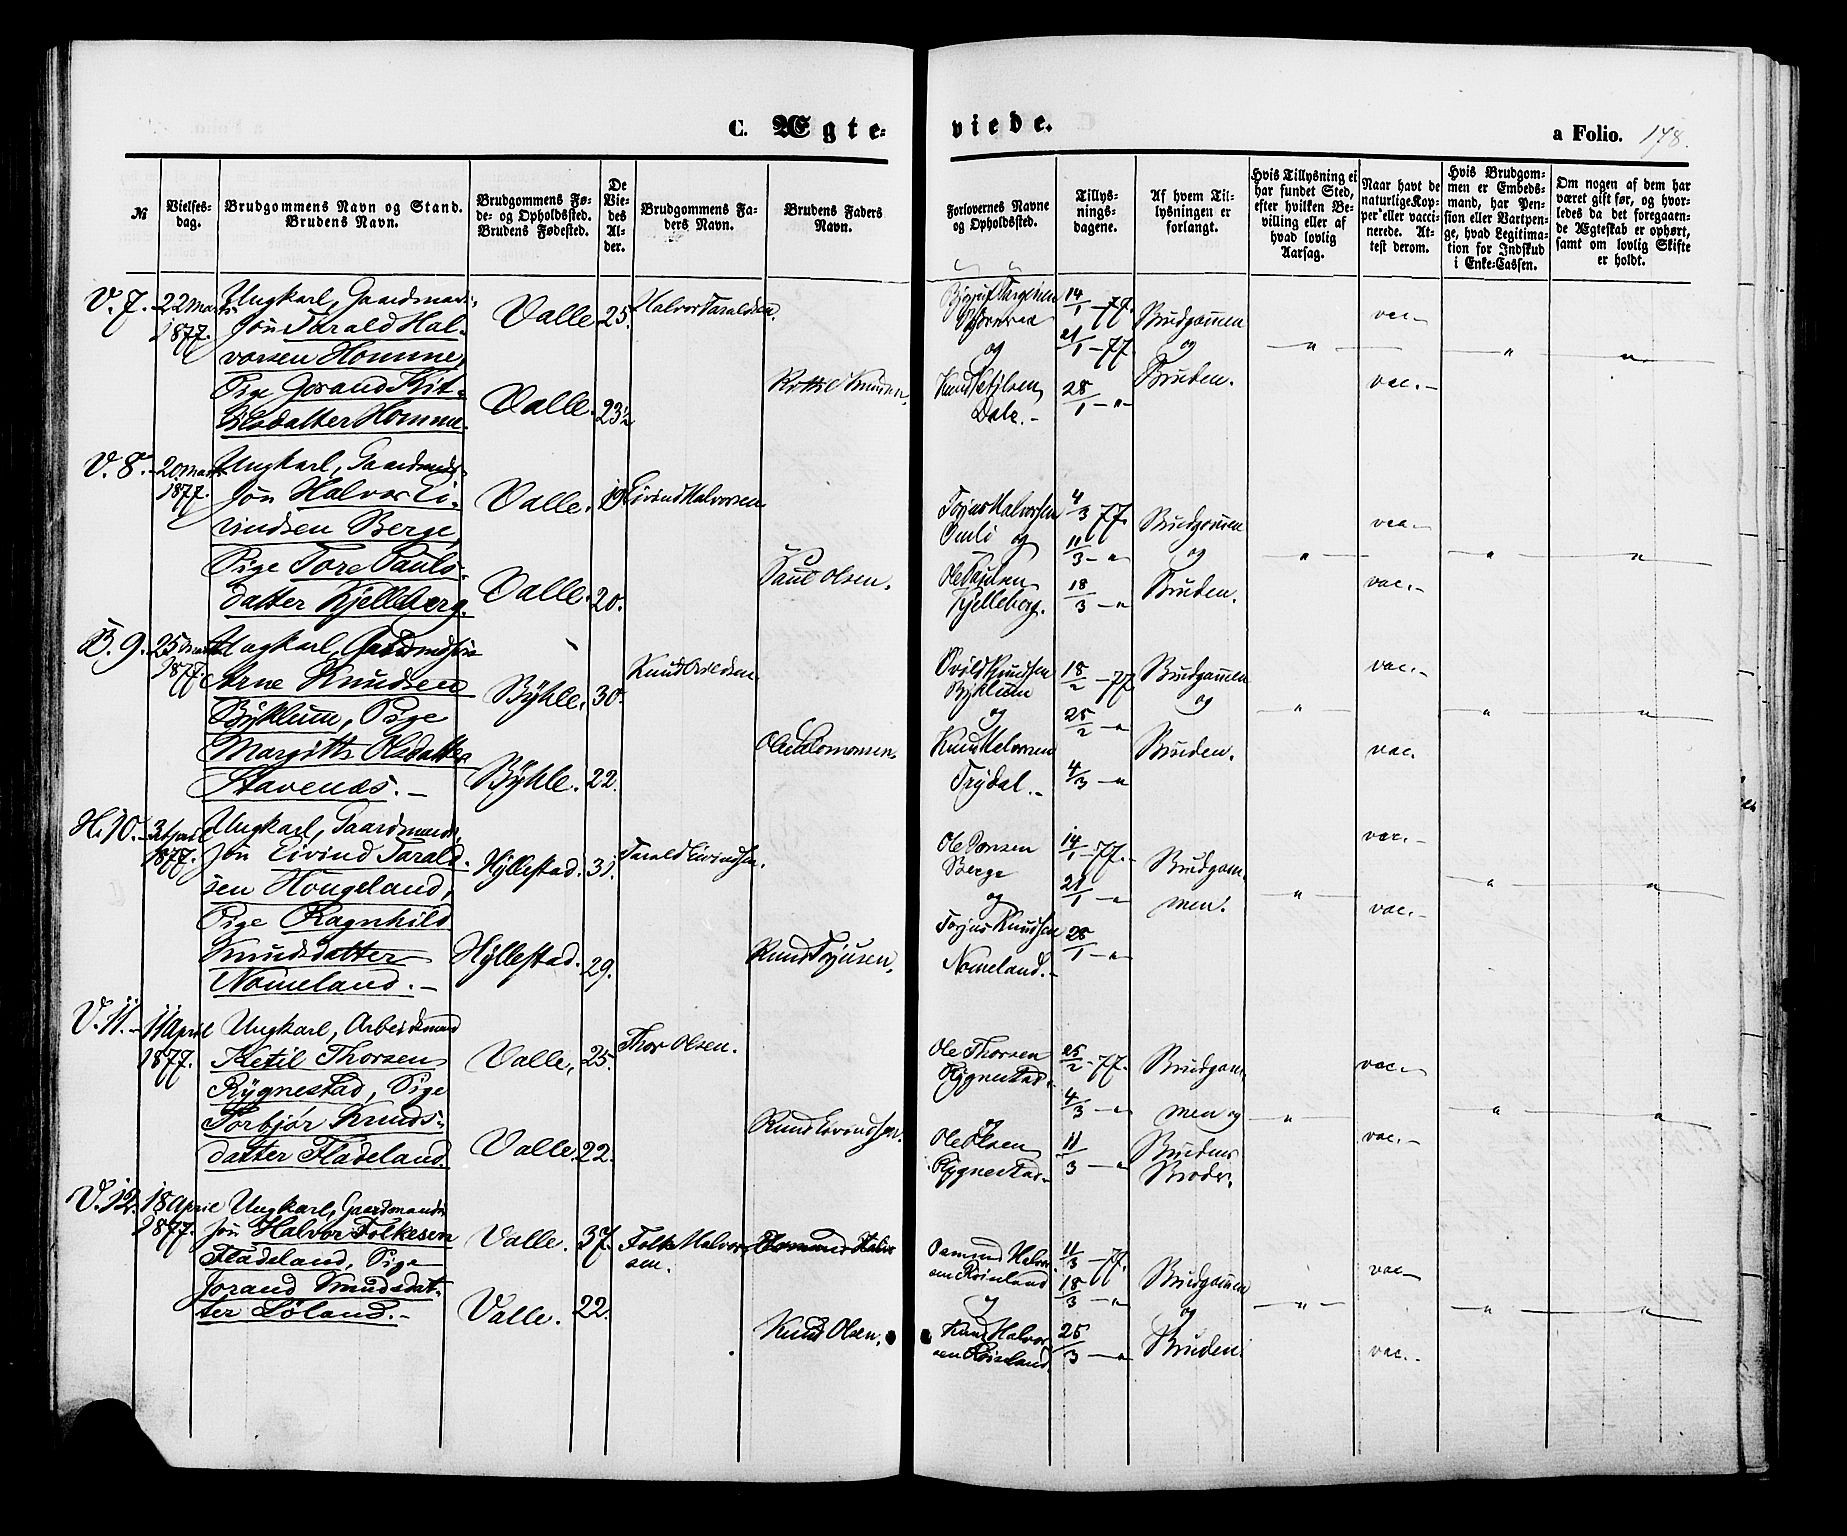 C. Ægte-
viede.
a Folio. 178.
№
Vielses-
dag.
Brudgommens Navn og Stand.
Brudens Navn.
Brudgommens Fø-
de- og Opholdssted.
Brudens Fødested.
De
Vie-
des
Al-
der.
Brudgommens Fa-
ders Navn.
Brudens Faders
Navn.
Forlovernes Navne
og Opholdssted.
Tillys-
nings-
dagene.
Af hvem Til-
lysningen er
forlangt.
Hvis Tillysning ei
har fundet Sted,
efter hvilken Be-
villing eller af
hvad lovlig
Aarsag.
Naar havt de
naturlige Kop-
per eller vacci-
nerede. At-
test derom.
Hvis Brudgom-
men er Embeds-
mand, har Pen-
sion eller Vartpen-
ge, hvad Legitima-
tion for Indskud
i Enke-Cassen.
Om nogen af dem har
været gift før, og hvor-
ledes da det foregaaen-
de Ægteskab er ophørt,
samt om lovlig Skifte
er holdt.
V. 7.
22 Marts
1877.
Ungkarl, Gaardmands-
søn Tarald Hal-
vorsen Homme,
Pige Gorand Kit-
ilsdatter Homme.
Valle 25.
Valle. 23½
Halvor Taraldsen.
Knud Ketilsen
Dale.
14/1 -77.
21/1 -77.
28/1 -"-
Brudgommen
og
Bruden.
vac.-
vac.-
V. 8.
20 Marts
1877.
Ungkarl, Gaardmands-
søn Halvor Ei-
vindsen Berge,
Pige Tore Pauls-
datter Kjelleberg.
Valle. 19.
Valle. 20.
Eivind Halvorsen
Paul Olsen.
Ole Paulsen
Kjelleberg.
4/3 -77.
11/3 -"
18/3 -"
Brudgommen
og
Bruden.
vac.-
vac.-
B. 9.
25 Marts
1877.
Ungkarl, Gaardmdssøn
Arne Knudsen
Byklum, Pige
Margith Olsdatter
Stavenæs.-
Bykle. 30.
Bykle. 22.
Ole Salomonsen.
Byklum
og
Knud Halvorsen
Trydal.-
18/2 -77
25/2 -"
4/3 -"
Brudgommen
og
Bruden.
vac.-
vac.
H. 10.
3 April
1877.
Ungkarl, Gaardmands-
søn Eivind Tarald-
sen Hougeland,
Pige Ragnhild
Knudsdatter
Nomeland.-
Hyllestad. 31.
Hyllestad. 29.
Tarald Eivindsen.
Knud Torjusen.
Berge
og
Torjus Knudsen
Nomeland.-
14/1 -77.-
21/1 -"
28/1 -"
Brudgom-
men.
vac.-
vac.-
V. 11.-
11 April
1877.
Ungkarl, Arbeidsmand
Ketil Thorsen
Rygnestad, Pige
Torbjør Knuds-
datter Fladeland.
Valle, 25.
Valle. 22.
Thor Olsen.
Knud Eivindsen.
Ole Thorsen
Rygnestad.
og
Ole Olsen
Rygnestad.
25/2 -77.
4/3 -"
11/3 -"
Brudgom-
men og
Brudens
Broder.
vac.-
vac.-
V. 12.
18 April
1877.
Ungkarl, Gaardmands-
søn Halvor Folkesen
Fladeland, Pige
Jorand Knudsdat-
ter Løland.-
Valle. 37.
Valle. 22.
Folke Halvor-
sen.
Knud Olsen.
og
Knud Halvor-
sen
11/3 -77.
18/3 -"
25/3 -"
Brudgommen
og
Bruden.
vac-
vac.-